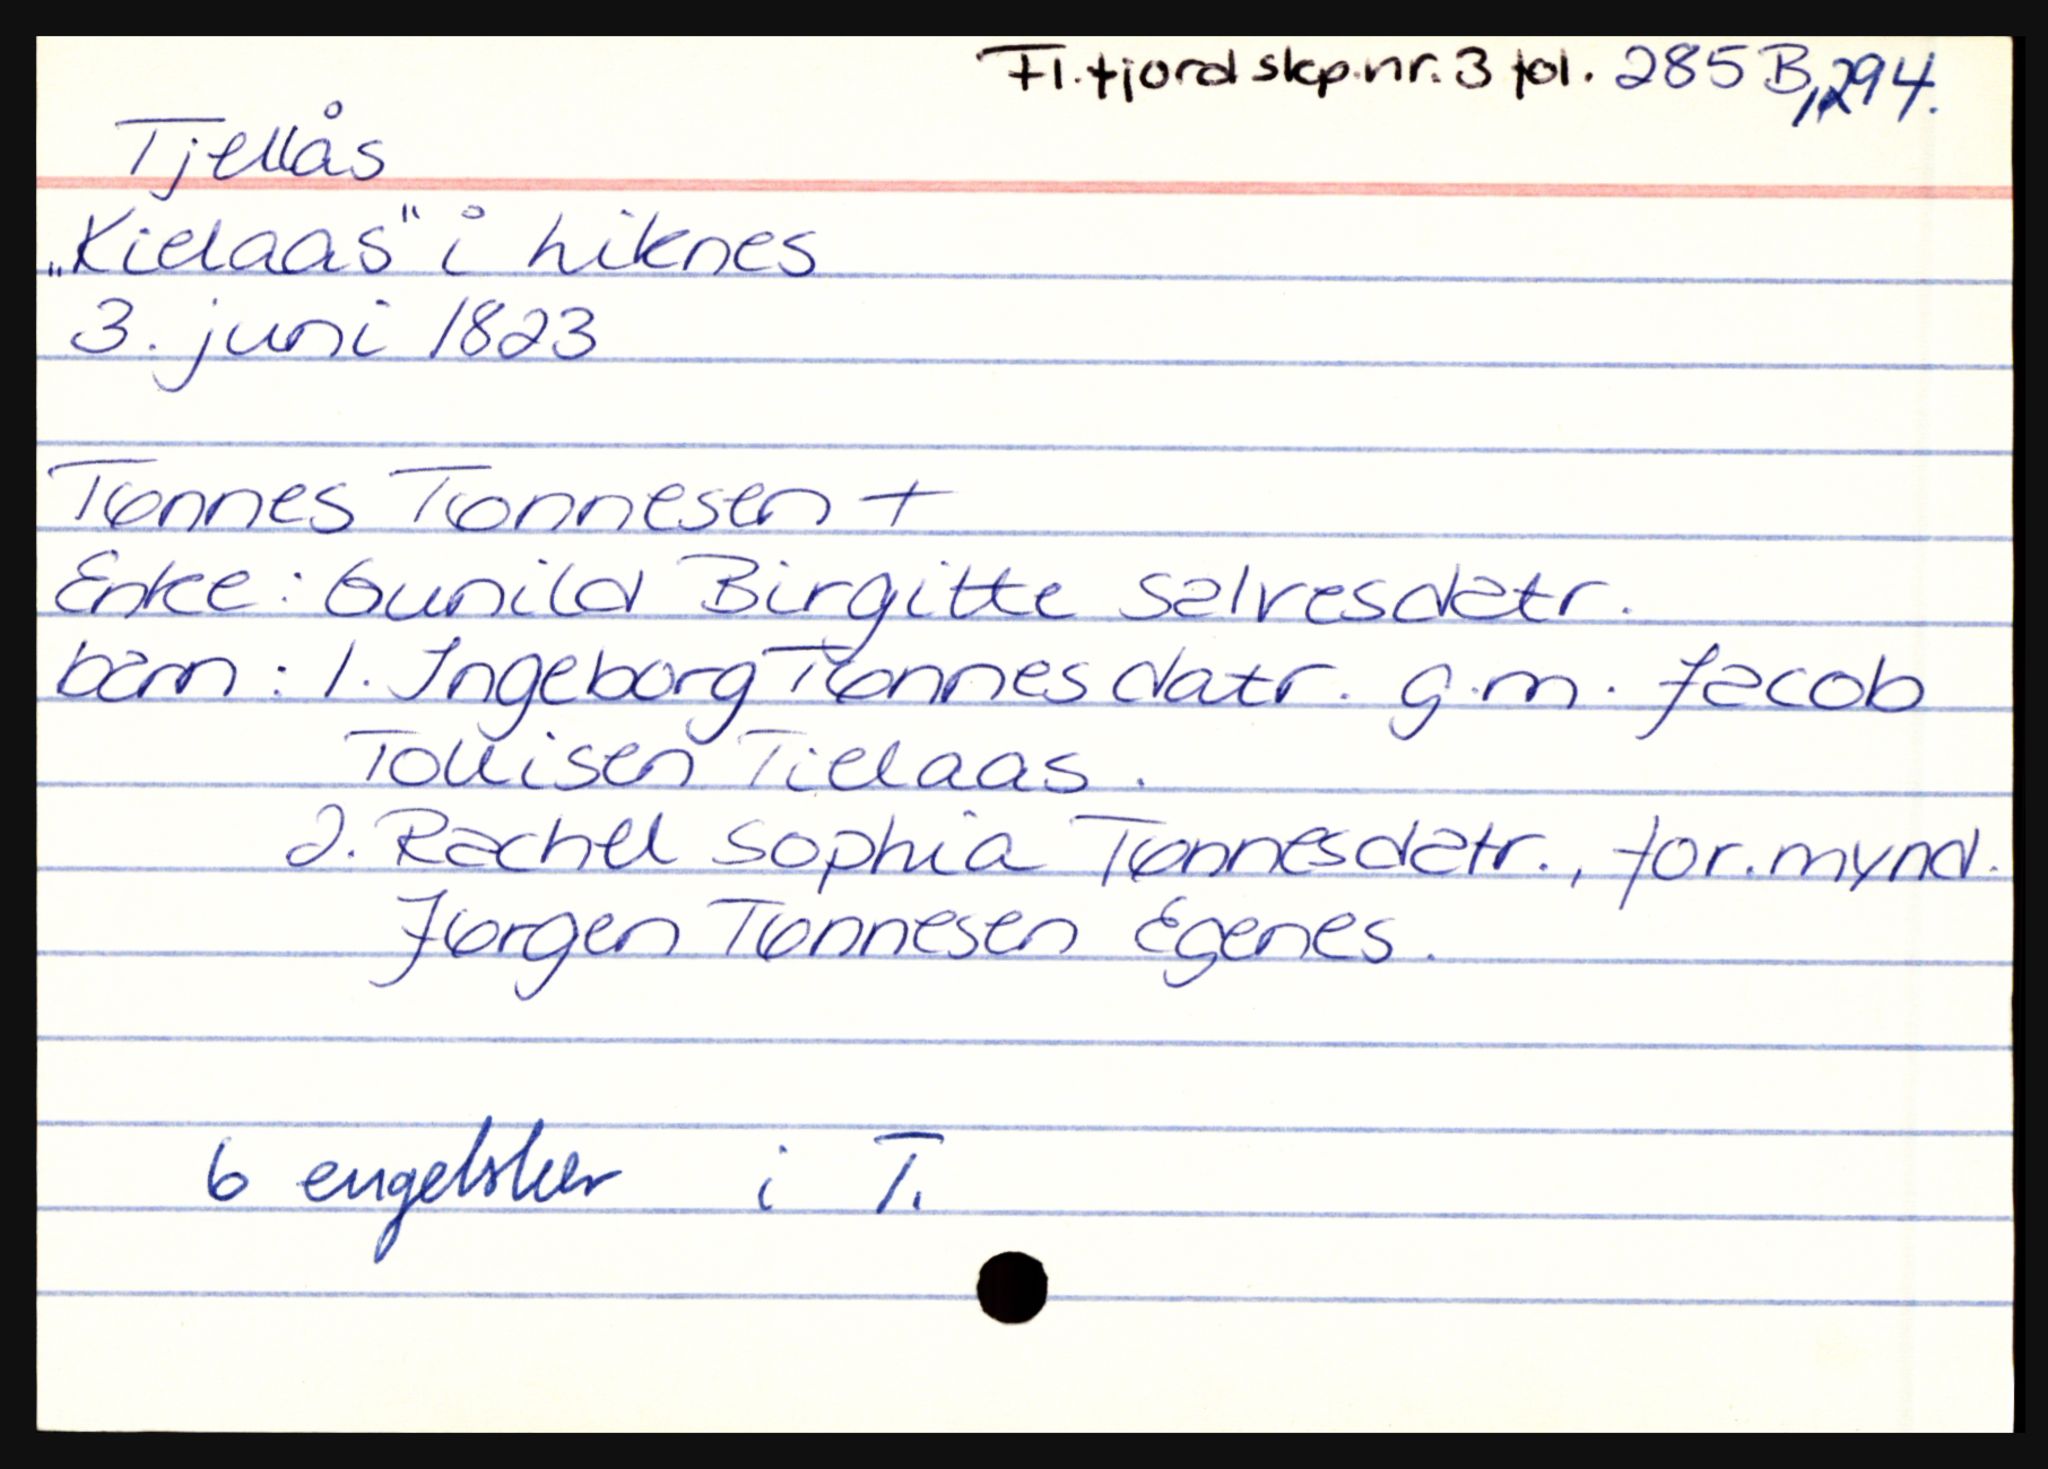 Fl.fjord skp.nr. 3 fol. 285 B, 294.
Tjellås
„Kielaas" i Liknes
3. juni 1823
Tønnes Tønnesen +
Enke: Gunild Birgitte Salvesdatr.
barn: 1. Ingeborg Tønnesdatr. g.m. Jacob
Tollisen Tielaas.
2. Rachel Sophia Tønnesdatr., for.mynd.
Jørgen Tønnesen Egenes.
6 engelsker i T.